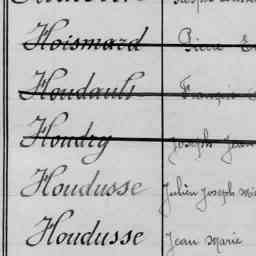 Hoismard Pierre
Houdault François
Houdry Joseph Jean
Houdusse Julien Joseph
Houdusse Jean Marie